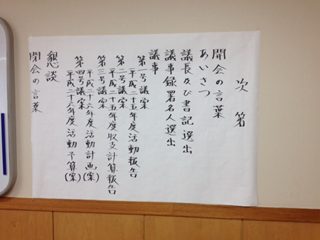 次第
開会の言葉
あいさつ
議長及び書記選出
議事録署名人選出
議事
第一号議案
平成二十五年度活動報告
第二号議案
平成二十五年度収支計算報告
第三号議案
平成二十六年度活動計画(案)
第四号議案
平成二十六年度活動予算(案)
懇談
閉会の言葉